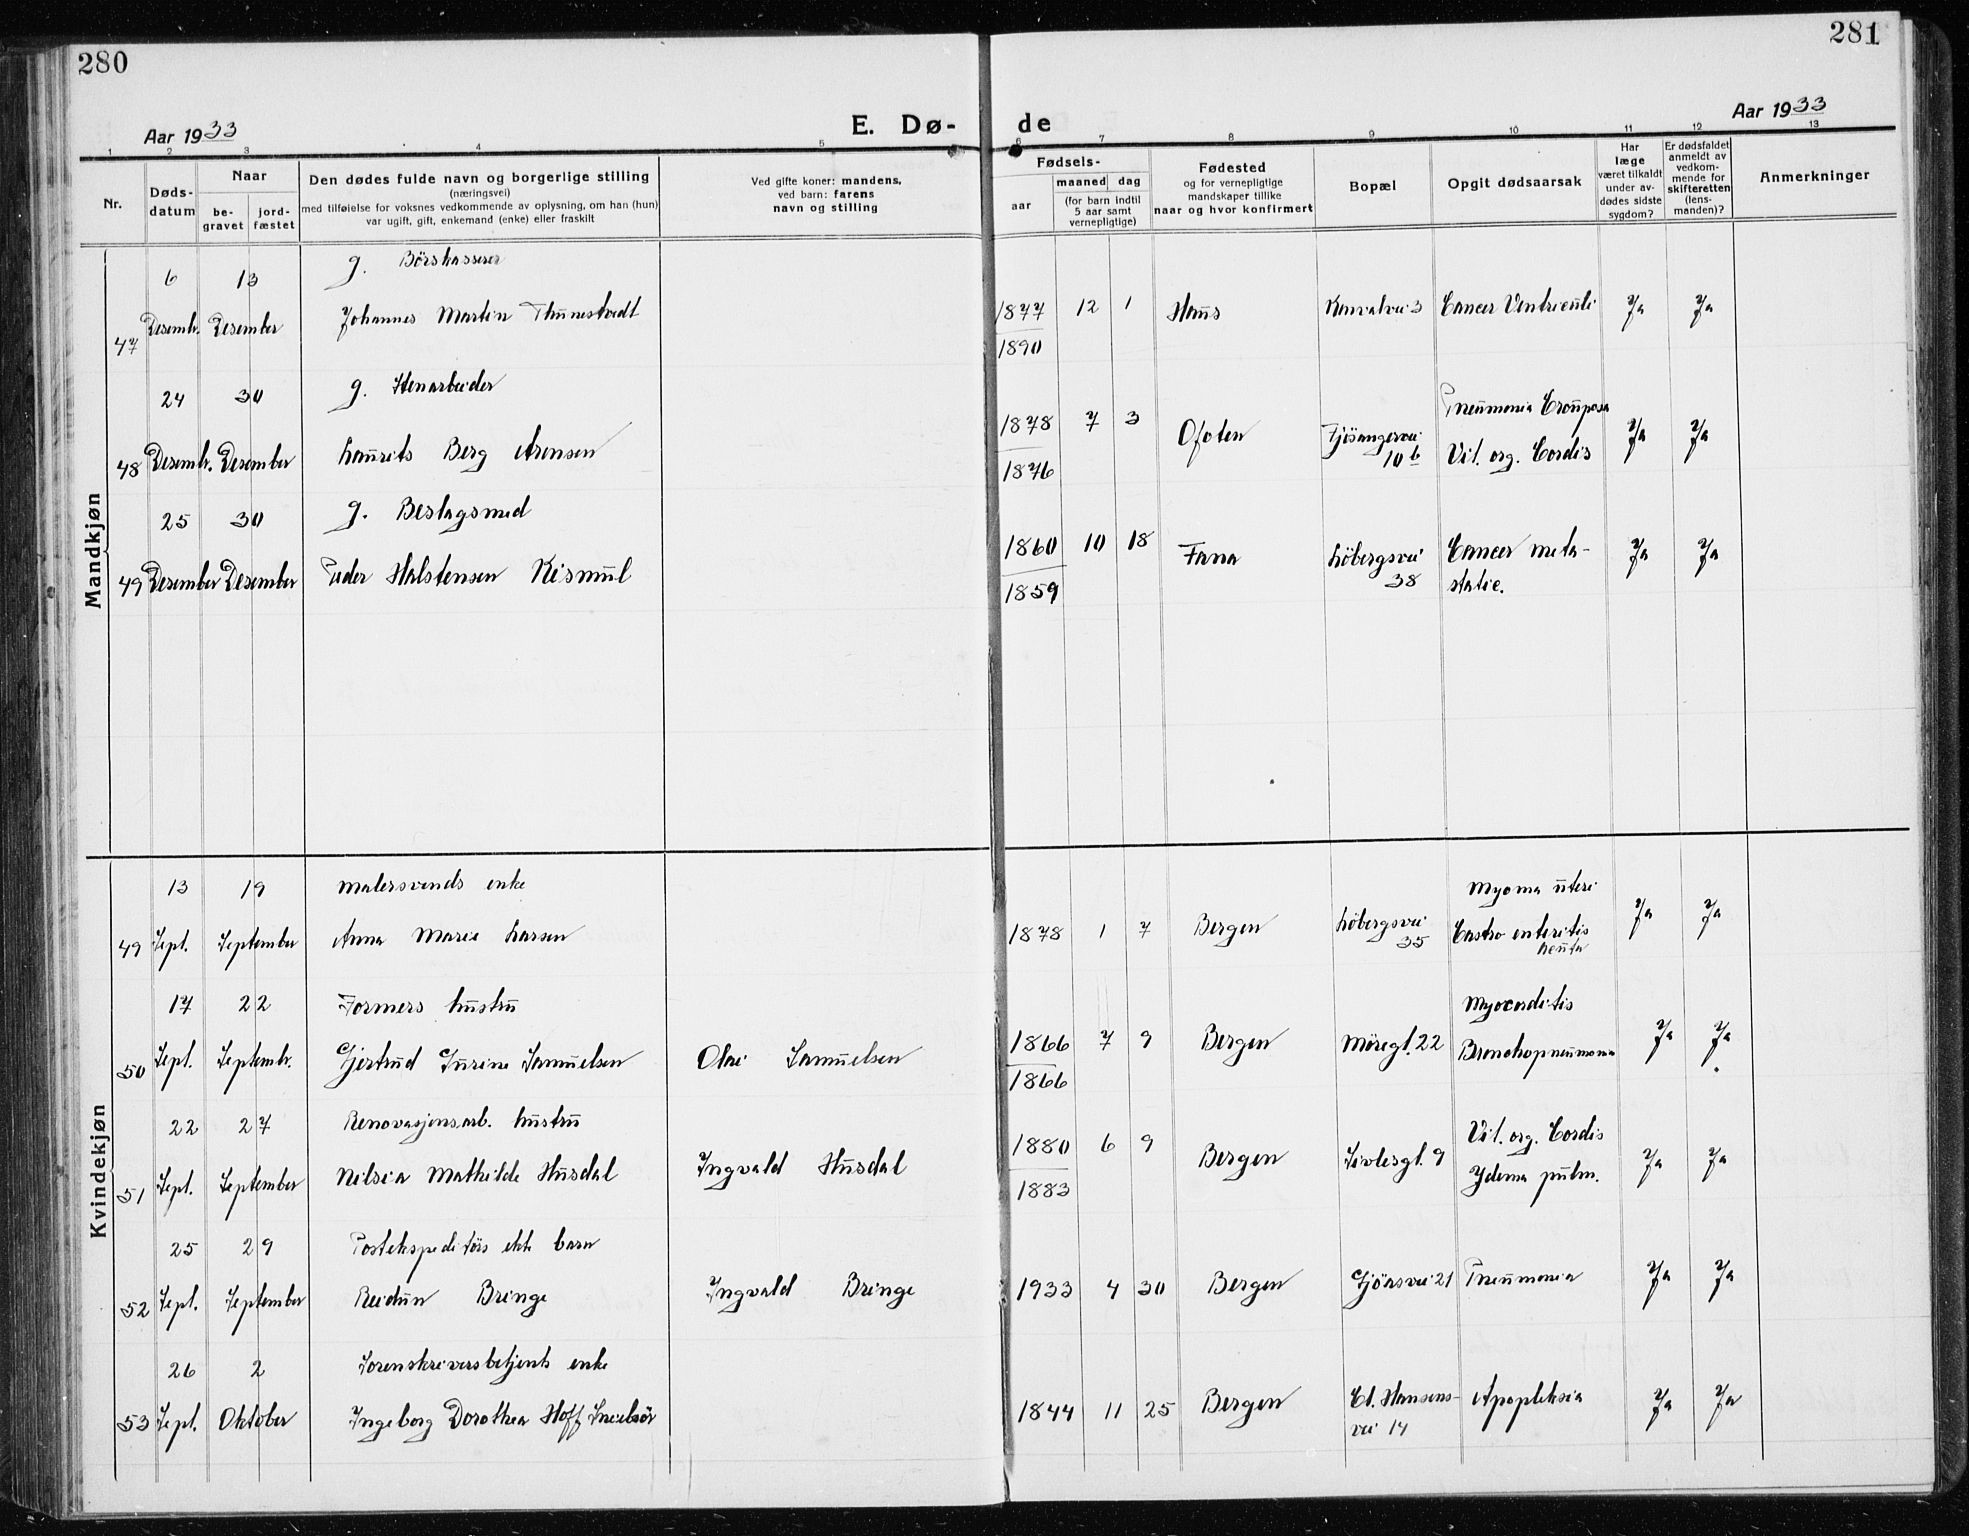 280
281
Aar 1933
E. Dø-
de
Aar 1933
1 2 3 4 5 6 7 8 9 10 11 12 13
Nr.
Døds-
datum
Naar
be-
gravet
jord-
fæstet
Den dødes fulde navn og borgerlige stilling
(næringsvei)
med tilføielse for voksnes vedkommende av oplysning, om han (hun)
var ugift, gift, enkemand (enke) eller fraskilt
Ved gifte koner: mandens,
ved barn: farens
navn og stilling
Fødsels-
aar
maaned dag
(for barn indtil
5 aar samt
vernepligtige)
Fødested
og for vernepligtige
mandskaper tillike
naar og hvor konfirmert
Bopæl
Opgit dødsaarsak
Har
læge
været tilkaldt
under av-
dødes sidste
sygdom?
Er dødsfaldet
anmeldt av
vedkom-
mende for
skifteretten
(lens-
manden)?
Anmerkninger
Mandkjøn
6 13 g. Börskasserer
47 Desembr. Desember Johannes Martin Thunestvedt 1877 12 1 Haus 3 Cancer Ventriculi Ja Ja
1890
24 30 g. Stenarbeider
48 Desembr. Desember Laurits Berg Arensen 1878 7 3 Ofoten Fjösangervei 10 b Pneumonia Crouposa
Vit. org. Cordis Ja Ja
1876
25 30 g. Beslagsmed
49 Desember Desember Peder Halstensen Kismul 1860 10 18 Fana Löbergsvei 38 Cancer meta-
static. Ja Ja
1859
Kvindekjøn
13 19 Malersvends enke
49 Sept. September Anna Marie Larsen 1878 1 7 Bergen Löbergsvei 35 Myoma uteri
Gastro enteritis
acuta Ja Ja
17 22 Formers hustru
50 Sept. Septembr. Gjertrud Gurine Samuelsen Olai Samuelsen 1866 7 9 Bergen Möregt. 22 Myocarditis
Bronchopneumonia Ja Ja
1866
22 27 Renovasjonsarb. hustru
51 Sept. September Nilsia Mathilde Husdal Ingvald Husdal 1880 6 9 Bergen Sivlesgt. 9 Vit. org. Cordis
Ydema pulm. Ja Ja
1883
25 29 Postekspeditörs ekte barn
52 Sept. September Reidun Bringe Ingvald Bringe 1933 4 30 Bergen Gjönsvei 21 Pneumonia Ja Ja
26 2 Sorenskriversbetjents enke
53 Sept. Oktober Ingeborg Dorothea Hoff 1844 11 25 Bergen Cl. Hansens-
vei 14 Apopleksia Ja Ja